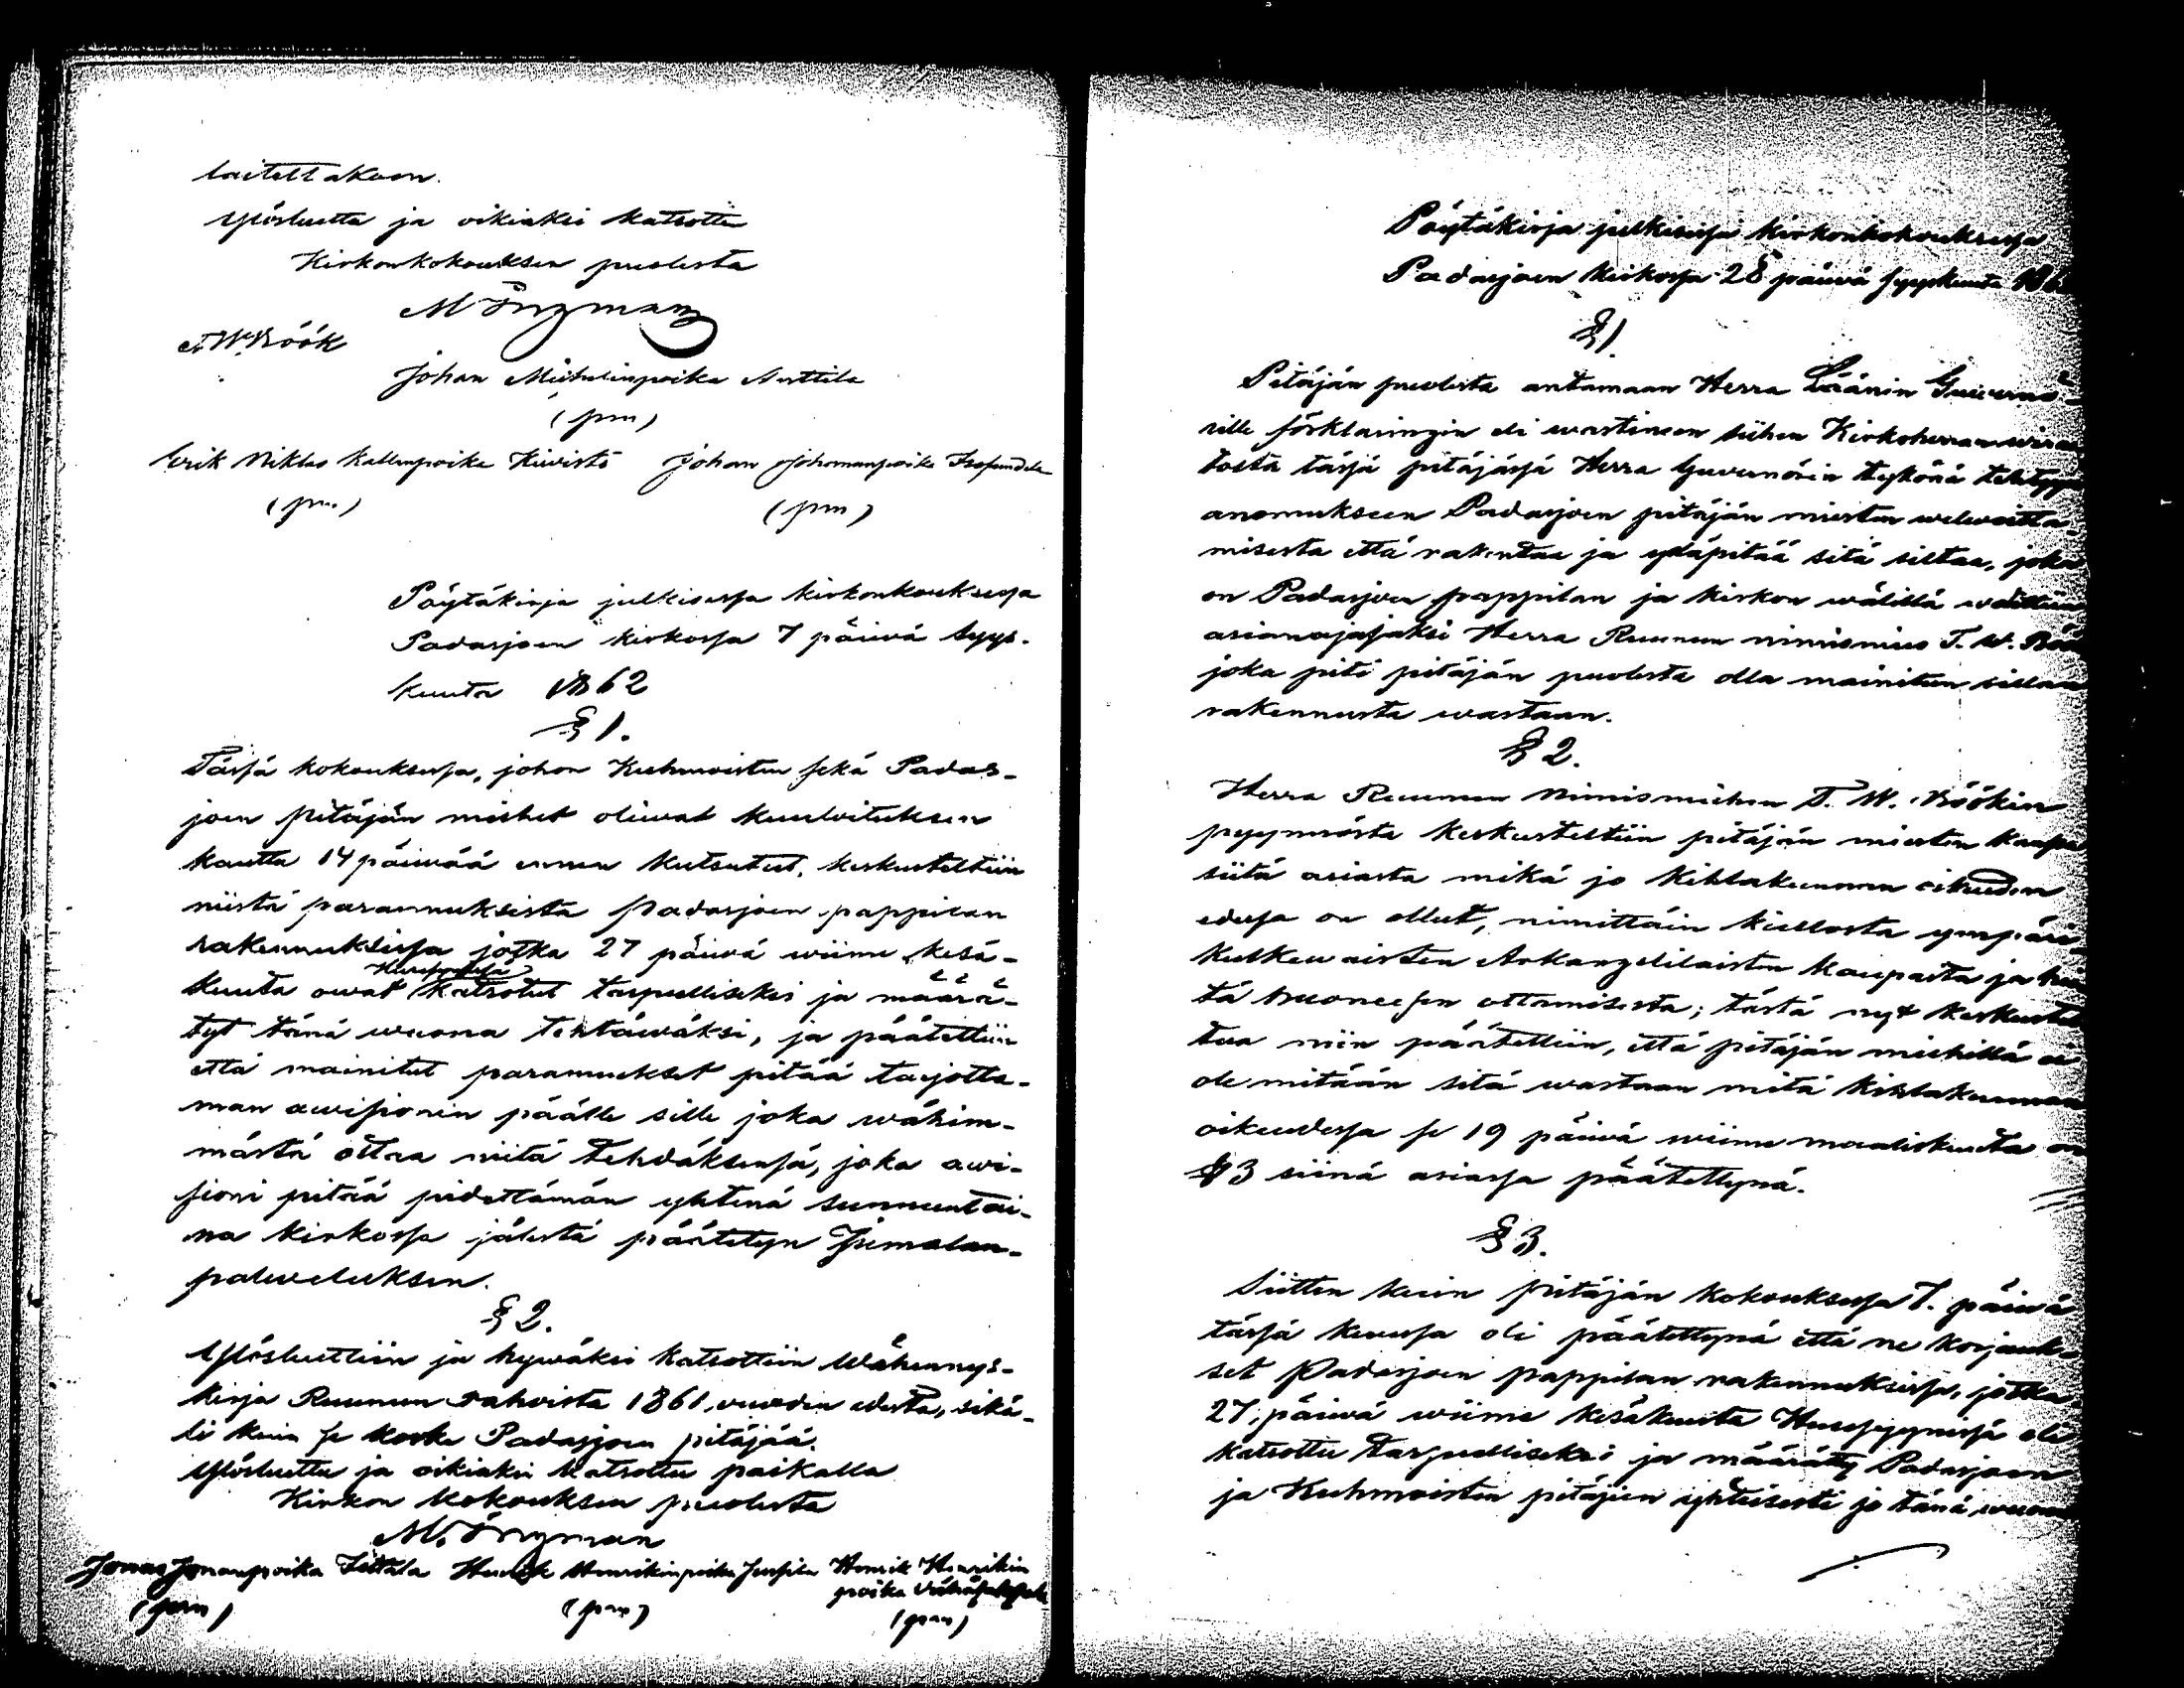 laitettakoon.
Ylösluettu ja oikiaksi katsottu
Kirkonkokouksen puolesta
M Öngman
T. W. Böök
Johan Michelinpoika Anttila
(pm)
Erik Niklas Kallenpoika Kivistö Johan Johananpoika
(pm) (pm)
Pöytäkirja julkisessa kirkonkouksessa
Padasjoen kirkossa 7 päivä Syys-
kuuta 1862
§ 1.
Tässä kokouksessa, johon Kuhmoisten sekä Padas-
joen pitäjän miehet oliwat kuuloituksen
kautta 14 päiwää ennen kutsutut, keskusteltiin
niistä parannuksista Padasjoen pappilan
rakennuksissa jotka 27 päivä wiime kesä-
kuuta owat Huusynissä katsotut tarpeelliseksi ja määrä-
tyt tänä wuonna tehtäwäksi, ja päätettiin
että mainitut parannukset pitää tarjotta-
man awisionin päälle sille joka wähim-
mästä ottaa niitä tehdäksensä, joka awi-
sioni pitää pidettämän yhtenä sunnuntai-
na kirkossa jälestä päätetyn Jumalan-
palweluksen.
§ 2.
Ylösluettiin ja hywäksi katsottiin Wähennys-
kirja Ruunun rahoista 1861 vuoden edestä, sikä-
li kuin se koske Padasjoen pitäjää.
Ylösluettu ja oikiaksi katsottu paikalla
Kirkon kokouksen puolesta
M. Öngman
Jonas Jonanpoika Henrik Henrikinpoika Jussila Henrik Henrikin
poika
(pm) (pm) (pm)
Pöytäkirja julkisessa kirkonkokouksessa
Padasjoen kirkossa 28 päivä syyskuuta
§ 1.
Pitäjän puolesta antamaan Herra Läänin Guvernö-
rille förklaringin eli wastineen siihen Kirkoherran
tosta tässä pitäjässä Herra Guvernörin tykönä tehtyyn
anomukseen Padasjoen pitäjän miesten welwoitta-
misesta että rakentaa ja ylöspitää sitä siltaa, joka
on Padasjoen pappilan ja kirkon wälillä walittiin
asianajajaksi Herra Ruunun nimismies T. W. Böök
joka piti pitäjän puolesta olla mainitun sillan
rakennusta wastaan.
§ 2.
Herra Ruunun Nimismiehen T. W. Böökin
pyynnöstä keskusteltiin pitäjän miesten kanssa
siitä asiasta mikä jo Kihlakunnan oikeuden
edessä on ollut, nimittäin kiellosta ympäri
kulkewaisten Arkangelilaisten kaupasta ja hei-
tä huoneesen ottamisesta; tästä nyt keskustel-
tua niin päätettiin, että pitäjän miehillä ei
ole mitään sitä wastaan mitä Kihlakunnan
oikeudessa se 19 päivä wiime maaliskuuta on
§ 3 siinä asiassa päätettynä.
§ 3.
Siitten kuin pitäjän kokouksessa 7. päivä
tässä kuussa oli päätettynä että ne korjauk-
set Padasjoen pappilan rakennuksissa, jotka
27. päivä wiime kesäkuuta Huusyynissä oli
katsottu tarpeelliseksi ja määrätty Padasjoen
ja Kuhmoisten pitäjien yhteisesti jo tänä wuonna